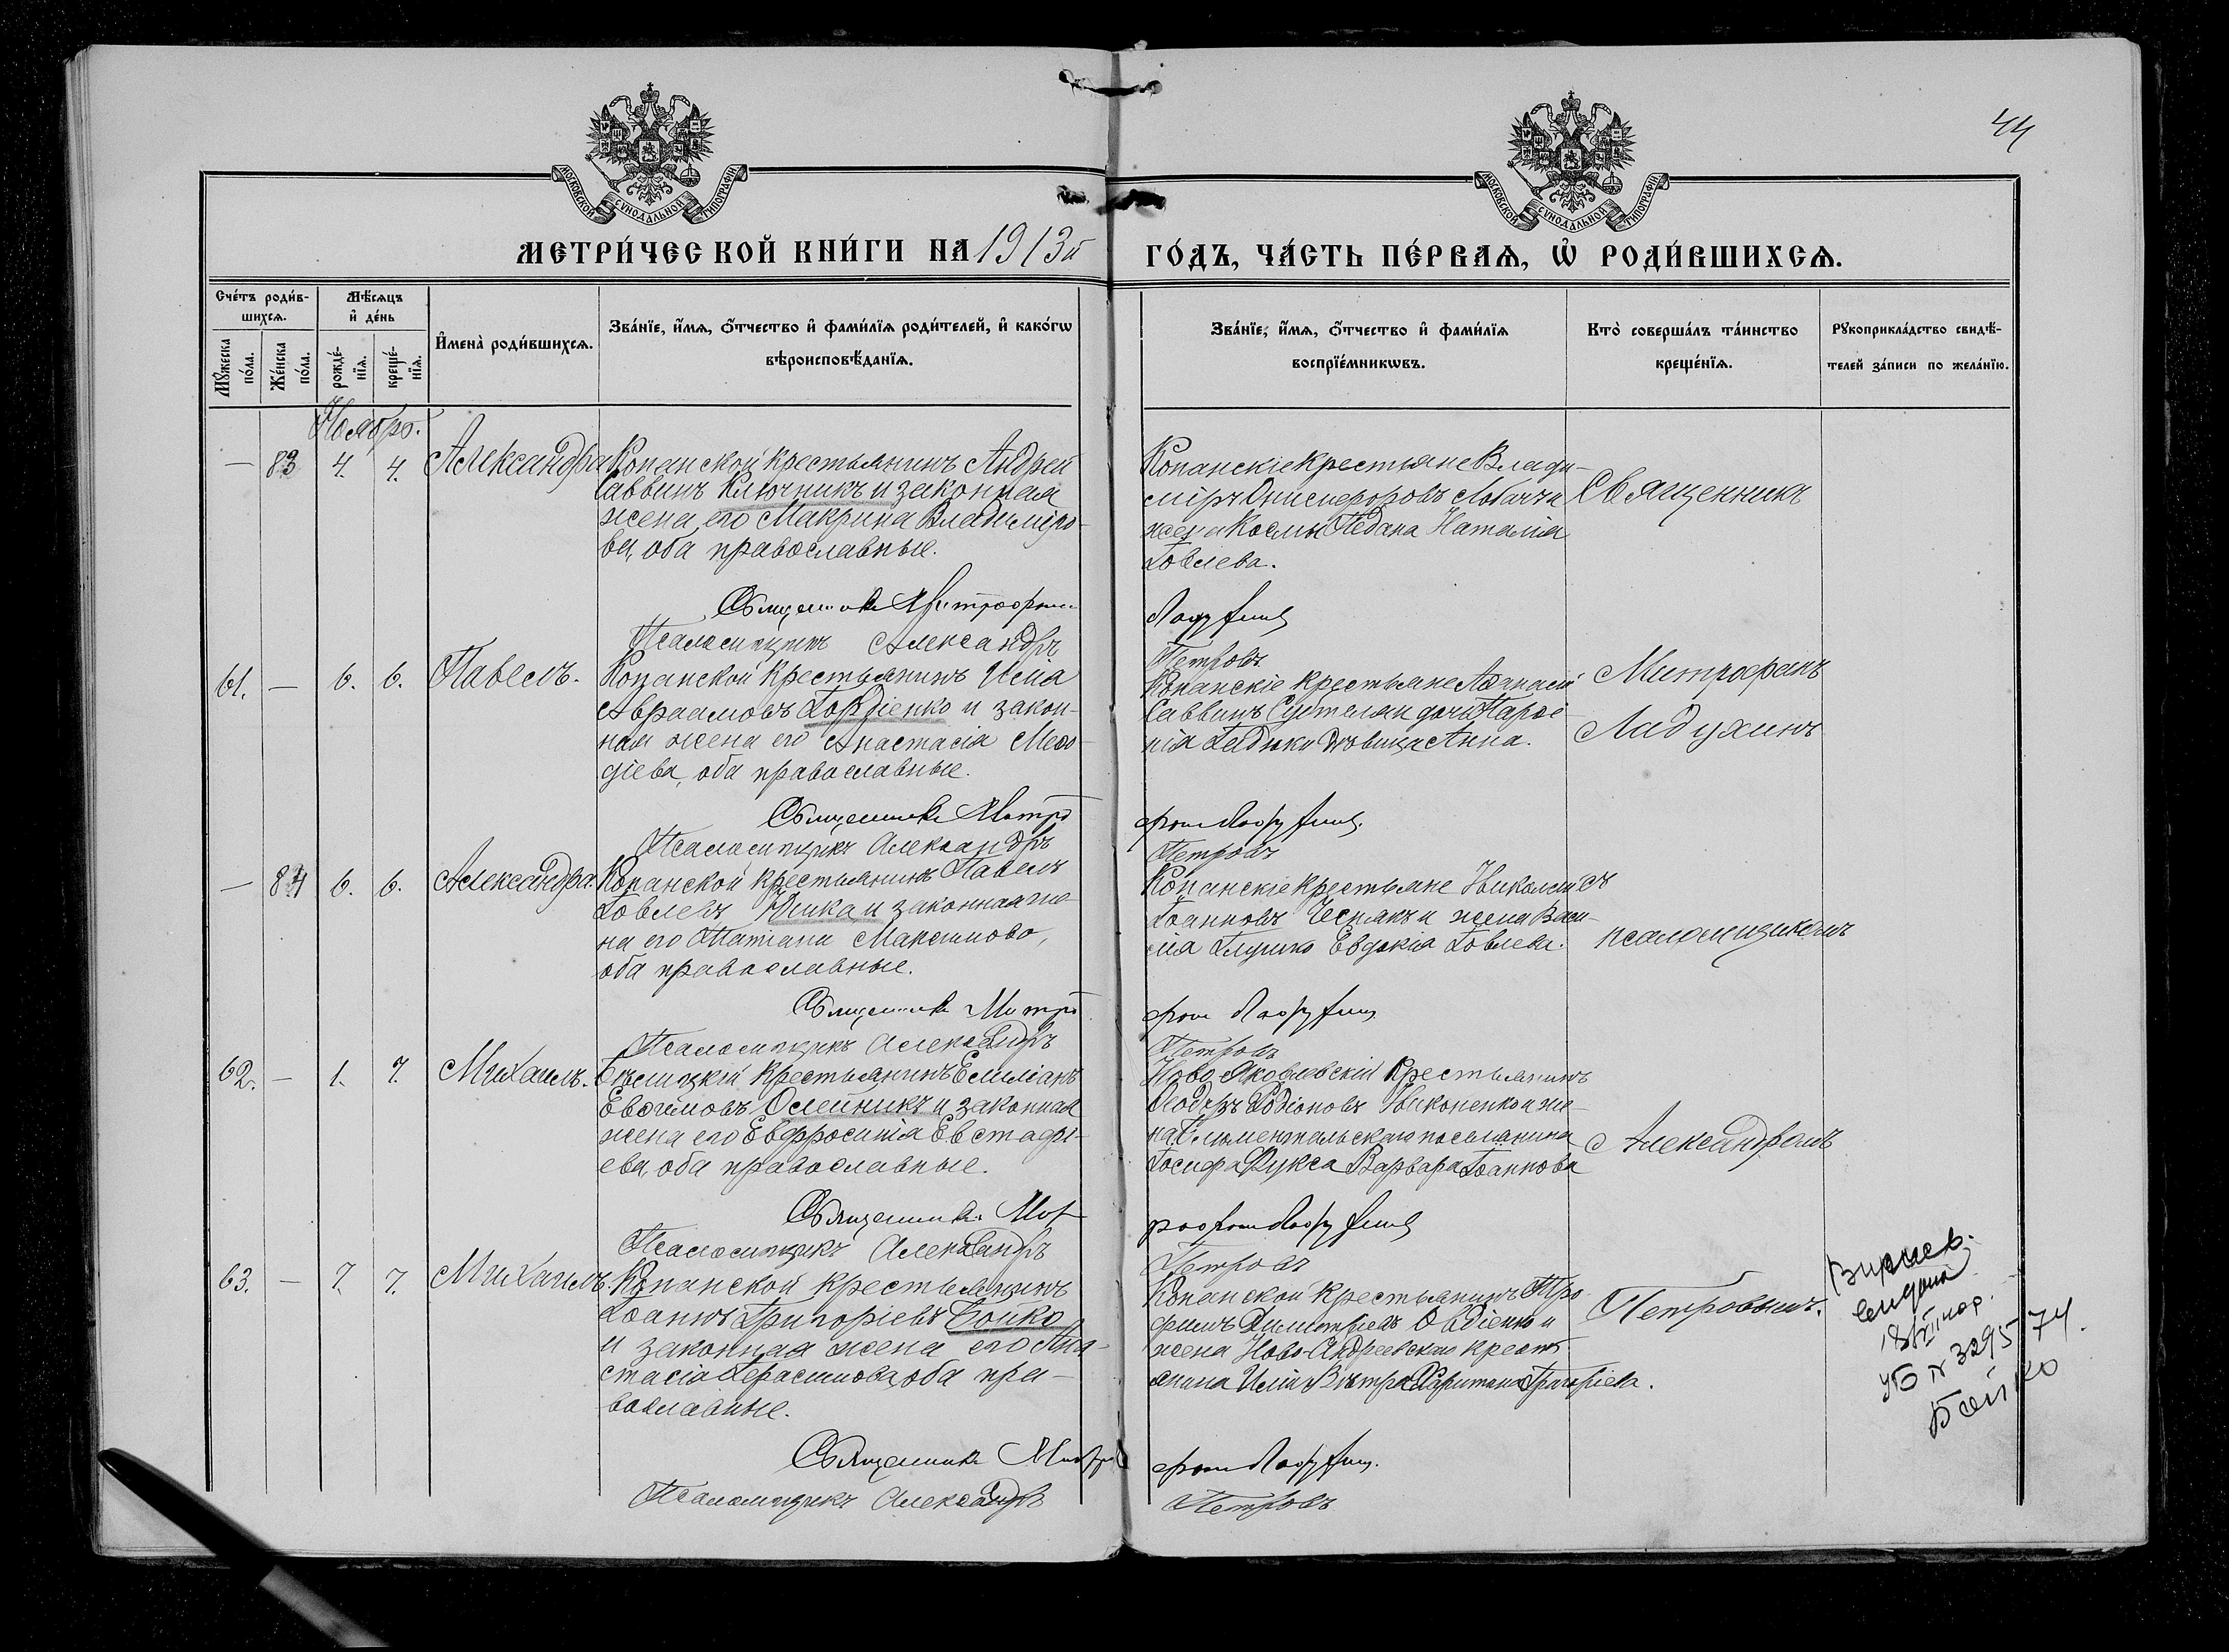 44
МОСКОВСКОЙ СѴНОДАЛЬНОЙ ТИПОГРАФІИ
МОСКОВСКОЙ СѴНОДАЛЬНОЙ ТИПОГРАФІИ
МЕТРИ́ЧЕСКОЙ КНИ́ГИ НА 1913й ГО́ДЪ, ЧА́СТЬ ПЕ́РВАѦ, Ѡ҆ РОДИ́ВШИХСѦ.
Сче́тъ роди́в-
шихсѧ.
Мꙋ́жеска по́ла.
Же́нска по́ла.
Мѣ́сѧцъ
и҆ де́нь
рожде́-
нїѧ.
креще́-
нїѧ.
И҆мена̀ роди́вшихсѧ.
Зва́нїе, и҆́мѧ, ѻ҆́тчество и҆ фами́лїѧ роди́телей, и҆ како́гѡ
вѣроисповѣ́данїѧ.
Зва́нїе, и҆́мѧ, ѻ҆́тчество и҆ фами́лїѧ
воспрїе́мникѡвъ.
Кто̀ соверша́лъ та́инство
креще́нїѧ.
Рꙋкоприкла́дство свидѣ́-
телей за́писи по жела́нїю.
Ноябрь.
— 83 4. 4. Александра
Копанской крестьянинъ Андрей
Саввинъ Ключникъ и законная
жена его Макрина Владимiро-
ва, оба православные.
Копанскіе крестьяне Влади-
мiръ Онисифоровъ
жена Космы Педана Наталія
Іовлева.
Священникъ
Священникъ Митрофанъ Ладухинъ
Псаломщикъ Александръ Петровъ
61. — 6. 6. Павелъ.
Копанской крестьянинъ Илiа
Авраамовъ Гордіенко и закон-
ная жена его Анастасія Меѳо-
діева, оба православные.
Копанскіе крестьяне Аѳанасій
Саввинъ и дочь Парѳе-
нія дѣвица Анна.
Митрофанъ
Ладухинъ
Священникъ Митрофанъ Ладухинъ
Псаломщикъ Александръ Петровъ
— 84 6. 6. Александра.
Копанской крестьянинъ Павелъ
Іовлевъ и законная же-
на его Татіана Максимова,
оба православные.
Копанскіе крестьяне Николай
Іоанновъ Чеснакъ и жена Васи-
лія Глушко Евдокія Іовлева.
съ
псаломщикомъ
Священникъ Митрофанъ Ладухинъ
Псаломщикъ Александръ Петровъ
62. — 1. 7. Михаилъ.
Бѣлицкій крестьянинъ Емиліанъ
Евѳимовъ Олейникъ и законная
жена его Евфросинія Евстафі-
ева, оба православные.
Ново-Яковлевскій крестьянинъ
Ѳеодоръ Родіоновъ Никоненко и же-
на поселянина
Іосифа Фукса Варвара Іоаннова
Александромъ
Священникъ Митрофанъ Ладухинъ
Псаломщикъ Александръ Петровъ
63. — 7. 7. Михаилъ.
Копанской крестьянинъ
Іоаннъ Григоріевъ Бойко
и законная жена его Ана-
стасія Герасимова, оба пра-
вославные.
Копанской крестьянинъ Тро-
фимъ Димитріевъ Овдіенко и
жена Ново-Андреевскаго крест-
янина Иліи Вѣтра Харитина Григоріева.
Петровымъ.
74
УБ № 3295
Бойко
Священникъ Митрофанъ Ладухинъ
Псаломщикъ Александръ Петровъ